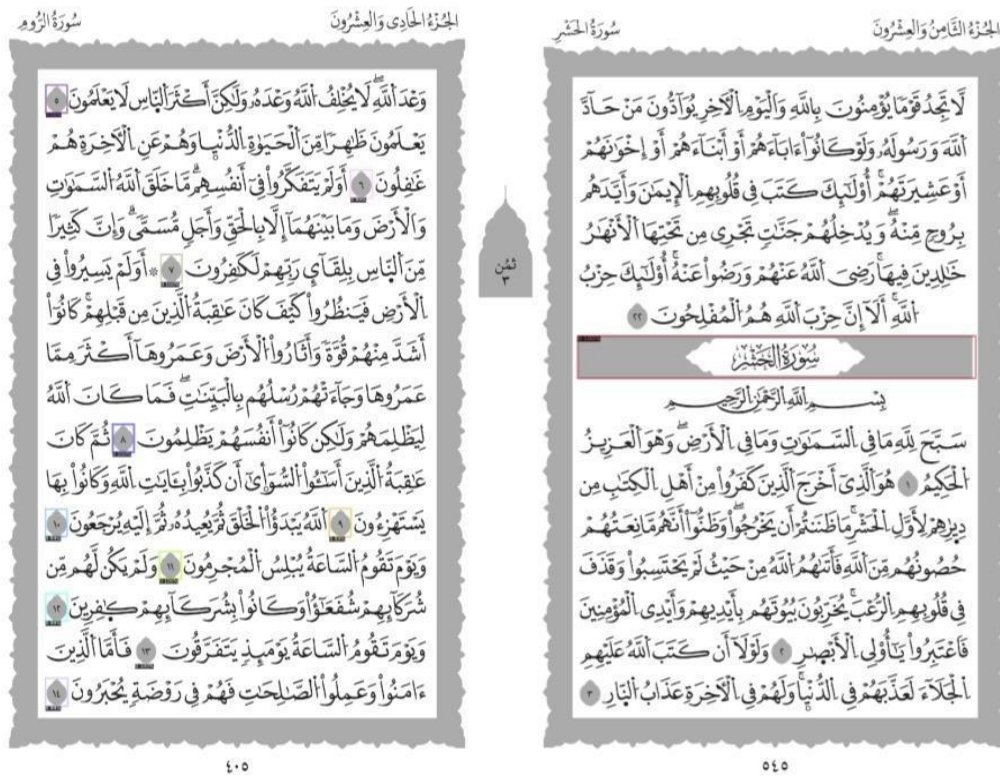 الجُزْءُ الثَّامِنُ وَالعِشْرُونَ
سُورَةُ الحَشْرِ
لَّا تَجِدُ قَوْمًا يُؤْمِنُونَ بِاللَّهِ وَالْيَوْمِ الْأٓخِرِ يُوَآدُّونَ مَنْ حَآدَّ
اللَّهَ وَرَسُولَهُۥ وَلَوْ كَانُوٓاْ ءَابَآءَهُمْ أَوْ أَبْنَآءَهُمْ أَوْ إِخْوَٰنَهُمْ
أَوْ عَشِيرَتَهُمْۚ أُوْلَٰٓئِكَ كَتَبَ فِي قُلُوبِهِمِ الْإِيمَٰنَ وَأَيَّدَهُم
بِرُوحٍ مِّنْهُۖ وَيُدْخِلُهُمْ جَنَّٰتٍ تَجْرِي مِن تَحْتِهَا الْأَنْهَٰرُ
خَٰلِدِينَ فِيهَاۚ رَضِيَ اللَّهُ عَنْهُمْ وَرَضُواْ عَنْهُۚ أُوْلَٰٓئِكَ حِزْبُ
اللَّهِۚ أَلَآ إِنَّ حِزْبَ اللَّهِ هُمُ الْمُفْلِحُونَ ٢٢
سُورَةُ الحَشْرِ
بِسْمِ اللَّهِ الرَّحْمَٰنِ الرَّحِيمِ
سَبَّحَ لِلَّهِ مَا فِي السَّمَٰوَٰتِ وَمَا فِي الْأَرْضِۖ وَهْوَ الْعَزِيزُ
الْحَكِيمُ ١ هُوَ الَّذِيٓ أَخْرَجَ الَّذِينَ كَفَرُواْ مِنْ أَهْلِ الْكِتَٰبِ مِن
دِيٰرِهِمْ لِأَوَّلِ الْحَشْرِۚ مَا ظَنَنتُمْ أَن يَخْرُجُواْۖ وَظَنُّوٓاْ أَنَّهُم مَّانِعَتُهُمْ
حُصُونُهُم مِّنَ اللَّهِ فَأَتَىٰهُمُ اللَّهُ مِنْ حَيْثُ لَمْ يَحْتَسِبُواْۖ وَقَذَفَ
فِي قُلُوبِهِمِ الرُّعْبَۚ يُخَرِّبُونَ بُيُوتَهُم بِأَيْدِيهِمْ وَأَيْدِي الْمُؤْمِنِينَ
فَاعْتَبِرُواْ يَٰٓأُوْلِي الْأَبْصٰرِ ٢ وَلَوْلَآ أَن كَتَبَ اللَّهُ عَلَيْهِمِ
الْجَلَآءَ لَعَذَّبَهُمْ فِي الدُّنْيٰاۖ وَلَهُمْ فِي الْأٓخِرَةِ عَذَابُ النّٰارِ ٣
٥٤٥
سُورَةُ الرُّومِ
الجُزْءُ الحَادِى وَالعِشْرُونَ
وَعْدَ اللَّهِۖ لَا يُخْلِفُ اللَّهُ وَعْدَهُۥ وَلَٰكِنَّ أَكْثَرَ النَّاسِ لَا يَعْلَمُونَ ٥
يَعْلَمُونَ ظَٰهِرًا مِّنَ الْحَيَوٰةِ الدُّنْيٰا وَهُمْ عَنِ الْأٓخِرَةِ هُمْ
غَٰفِلُونَ ٦ أَوَلَمْ يَتَفَكَّرُواْ فِيٓ أَنفُسِهِمۗ مَّا خَلَقَ اللَّهُ السَّمَٰوَٰتِ
وَالْأَرْضَ وَمَا بَيْنَهُمَآ إِلَّا بِالْحَقِّ وَأَجَلٍ مُّسَمًّىۗ وَإِنَّ كَثِيرًا
مِّنَ النَّاسِ بِلِقَآيِٕ رَبِّهِمْ لَكَٰفِرُونَ ٧ ۞ أَوَلَمْ يَسِيرُواْ فِي
الْأَرْضِ فَيَنظُرُواْ كَيْفَ كَانَ عَٰقِبَةُ الَّذِينَ مِن قَبْلِهِمْۚ كَانُوٓاْ
أَشَدَّ مِنْهُمْ قُوَّةً وَأَثَارُواْ الْأَرْضَ وَعَمَرُوهَآ أَكْثَرَ مِمَّا
عَمَرُوهَا وَجَآءَتْهُمْ رُسْلُهُم بِالْبَيِّنَٰتِۖ فَمَا كَانَ اللَّهُ
لِيَظْلِمَهُمْ وَلَٰكِن كَانُوٓاْ أَنفُسَهُمْ يَظْلِمُونَ ٨ ثُمَّ كَانَ
عَٰقِبَةُ الَّذِينَ أَسَٰٓـُٔواْ السُّوٓأٰىٓ أَن كَذَّبُواْ بِـَٔايَٰتِ اللَّهِ وَكَانُواْ بِهَا
يَسْتَهْزِءُونَ ٩ اللَّهُ يَبْدَؤُاْ الْخَلْقَ ثُمَّ يُعِيدُهُۥ ثُمَّ إِلَيْهِ يُرْجَعُونَ ١٠
وَيَوْمَ تَقُومُ السَّاعَةُ يُبْلِسُ الْمُجْرِمُونَ ١١ وَلَمْ يَكُن لَّهُم مِّن
شُرَكَآئِهِمْ شُفَعَٰٓؤُاْ وَكَانُواْ بِشُرَكَآئِهِمْ كٰفِرِينَ ١٢
وَيَوْمَ تَقُومُ السَّاعَةُ يَوْمَئِذٍ يَتَفَرَّقُونَ ١٣ فَأَمَّا الَّذِينَ
ءَامَنُواْ وَعَمِلُواْ الصَّٰلِحَٰتِ فَهُمْ فِي رَوْضَةٍ يُحْبَرُونَ ١٤
ثُمُن
٣
٤٠٥